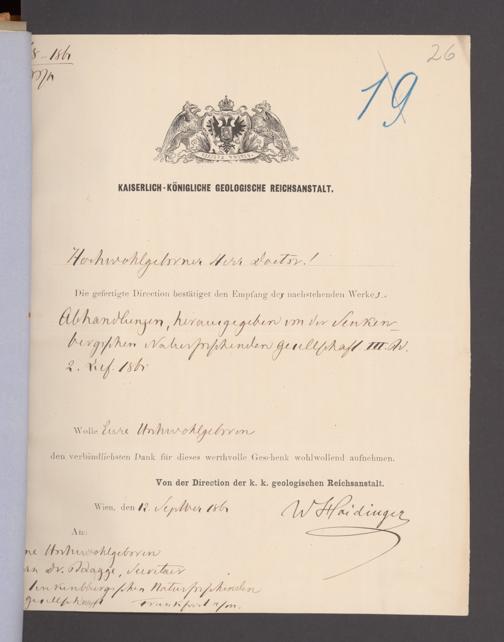 26
19
KAISERLICH-KÖNIGLICHE GEOLOGISCHE REICHSANSTALT.
Hochwohlgeborner Herr Doctor!
Die gefertigte Direction bestätiget den Empfang des nachstehenden Werkes.
Abhandlungen, herausgegeben von der Senken-
bergischen Naturforschenden Gesellschaft III. Bd.
2. Lief. 1861
Wolle Eure Hochwohlgeboren
den verbindlichsten Dank für dieses werthvolle Geschenk wohlwollend aufnehmen.
Von der Direction der k. k. geologischen Reichsanstalt.
Wien, den 12. September 1861
W Haidinger
An:
Hochwohlgeboren
Dr. Secretär
Senkenbergischen Naturforschenden
Gesellschaft Frankfurt a/m.